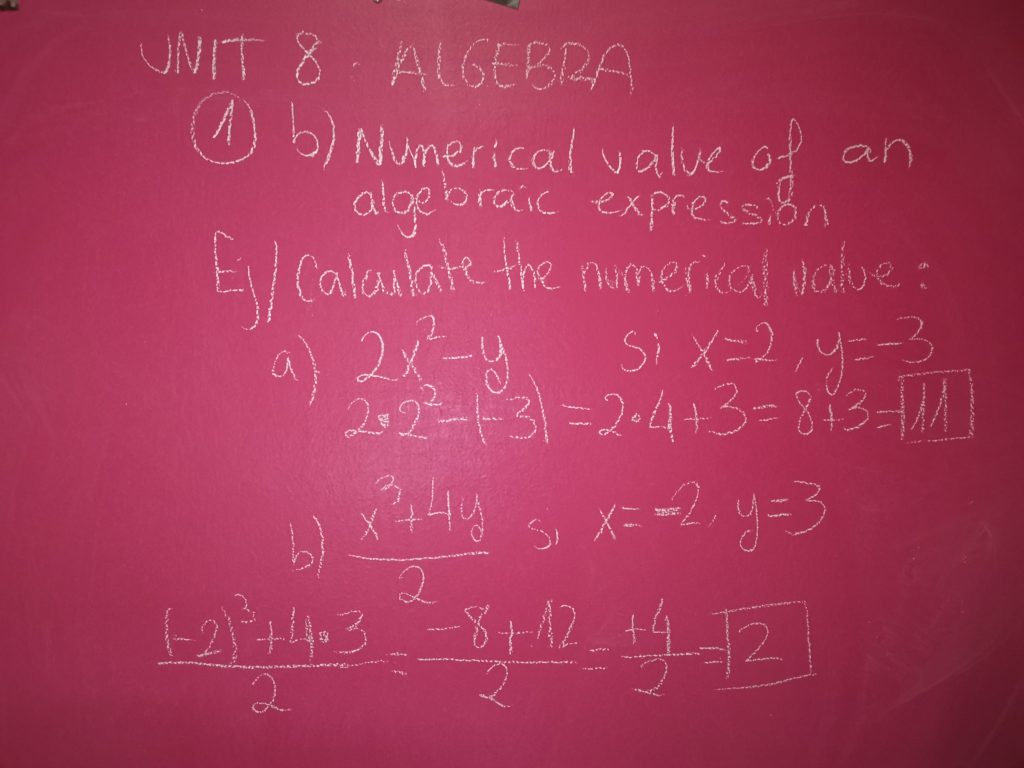 UNIT 8. ALGEBRA
① b) Numerical value of an
algebraic expression
Ej/ Calculate the numerical value:
a) 2x²-y si x=2, y=-3
2•2²-(-3) = 2•4+3= 8+3=11
b) x³+4y / 2 si x=-2, y=3
(-2)³+4•3 / 2 = -8+12 / 2 = +4 / 2 = 2